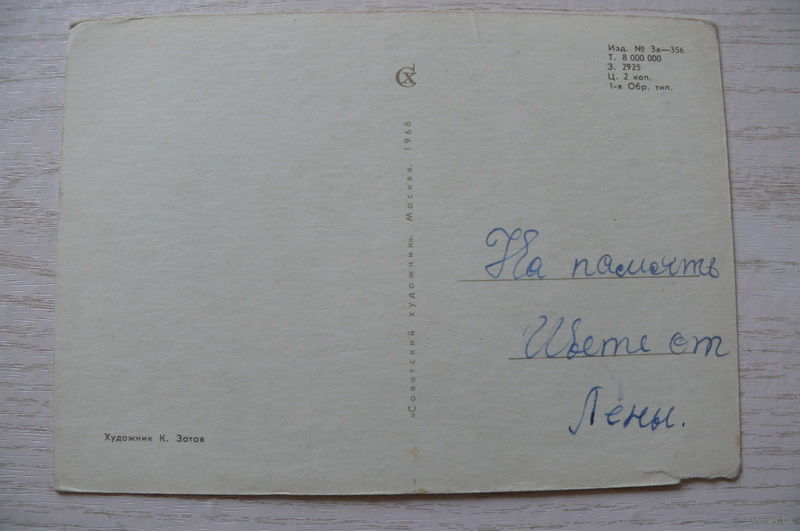 СХ
Изд. № 3а—356
Т. 8 000 000
З. 2925
Ц. 2 коп.
1-я Обр. тип.
«Советский художник». Москва. 1968
На память
Свете от
Лены.
Художник К. Зотов